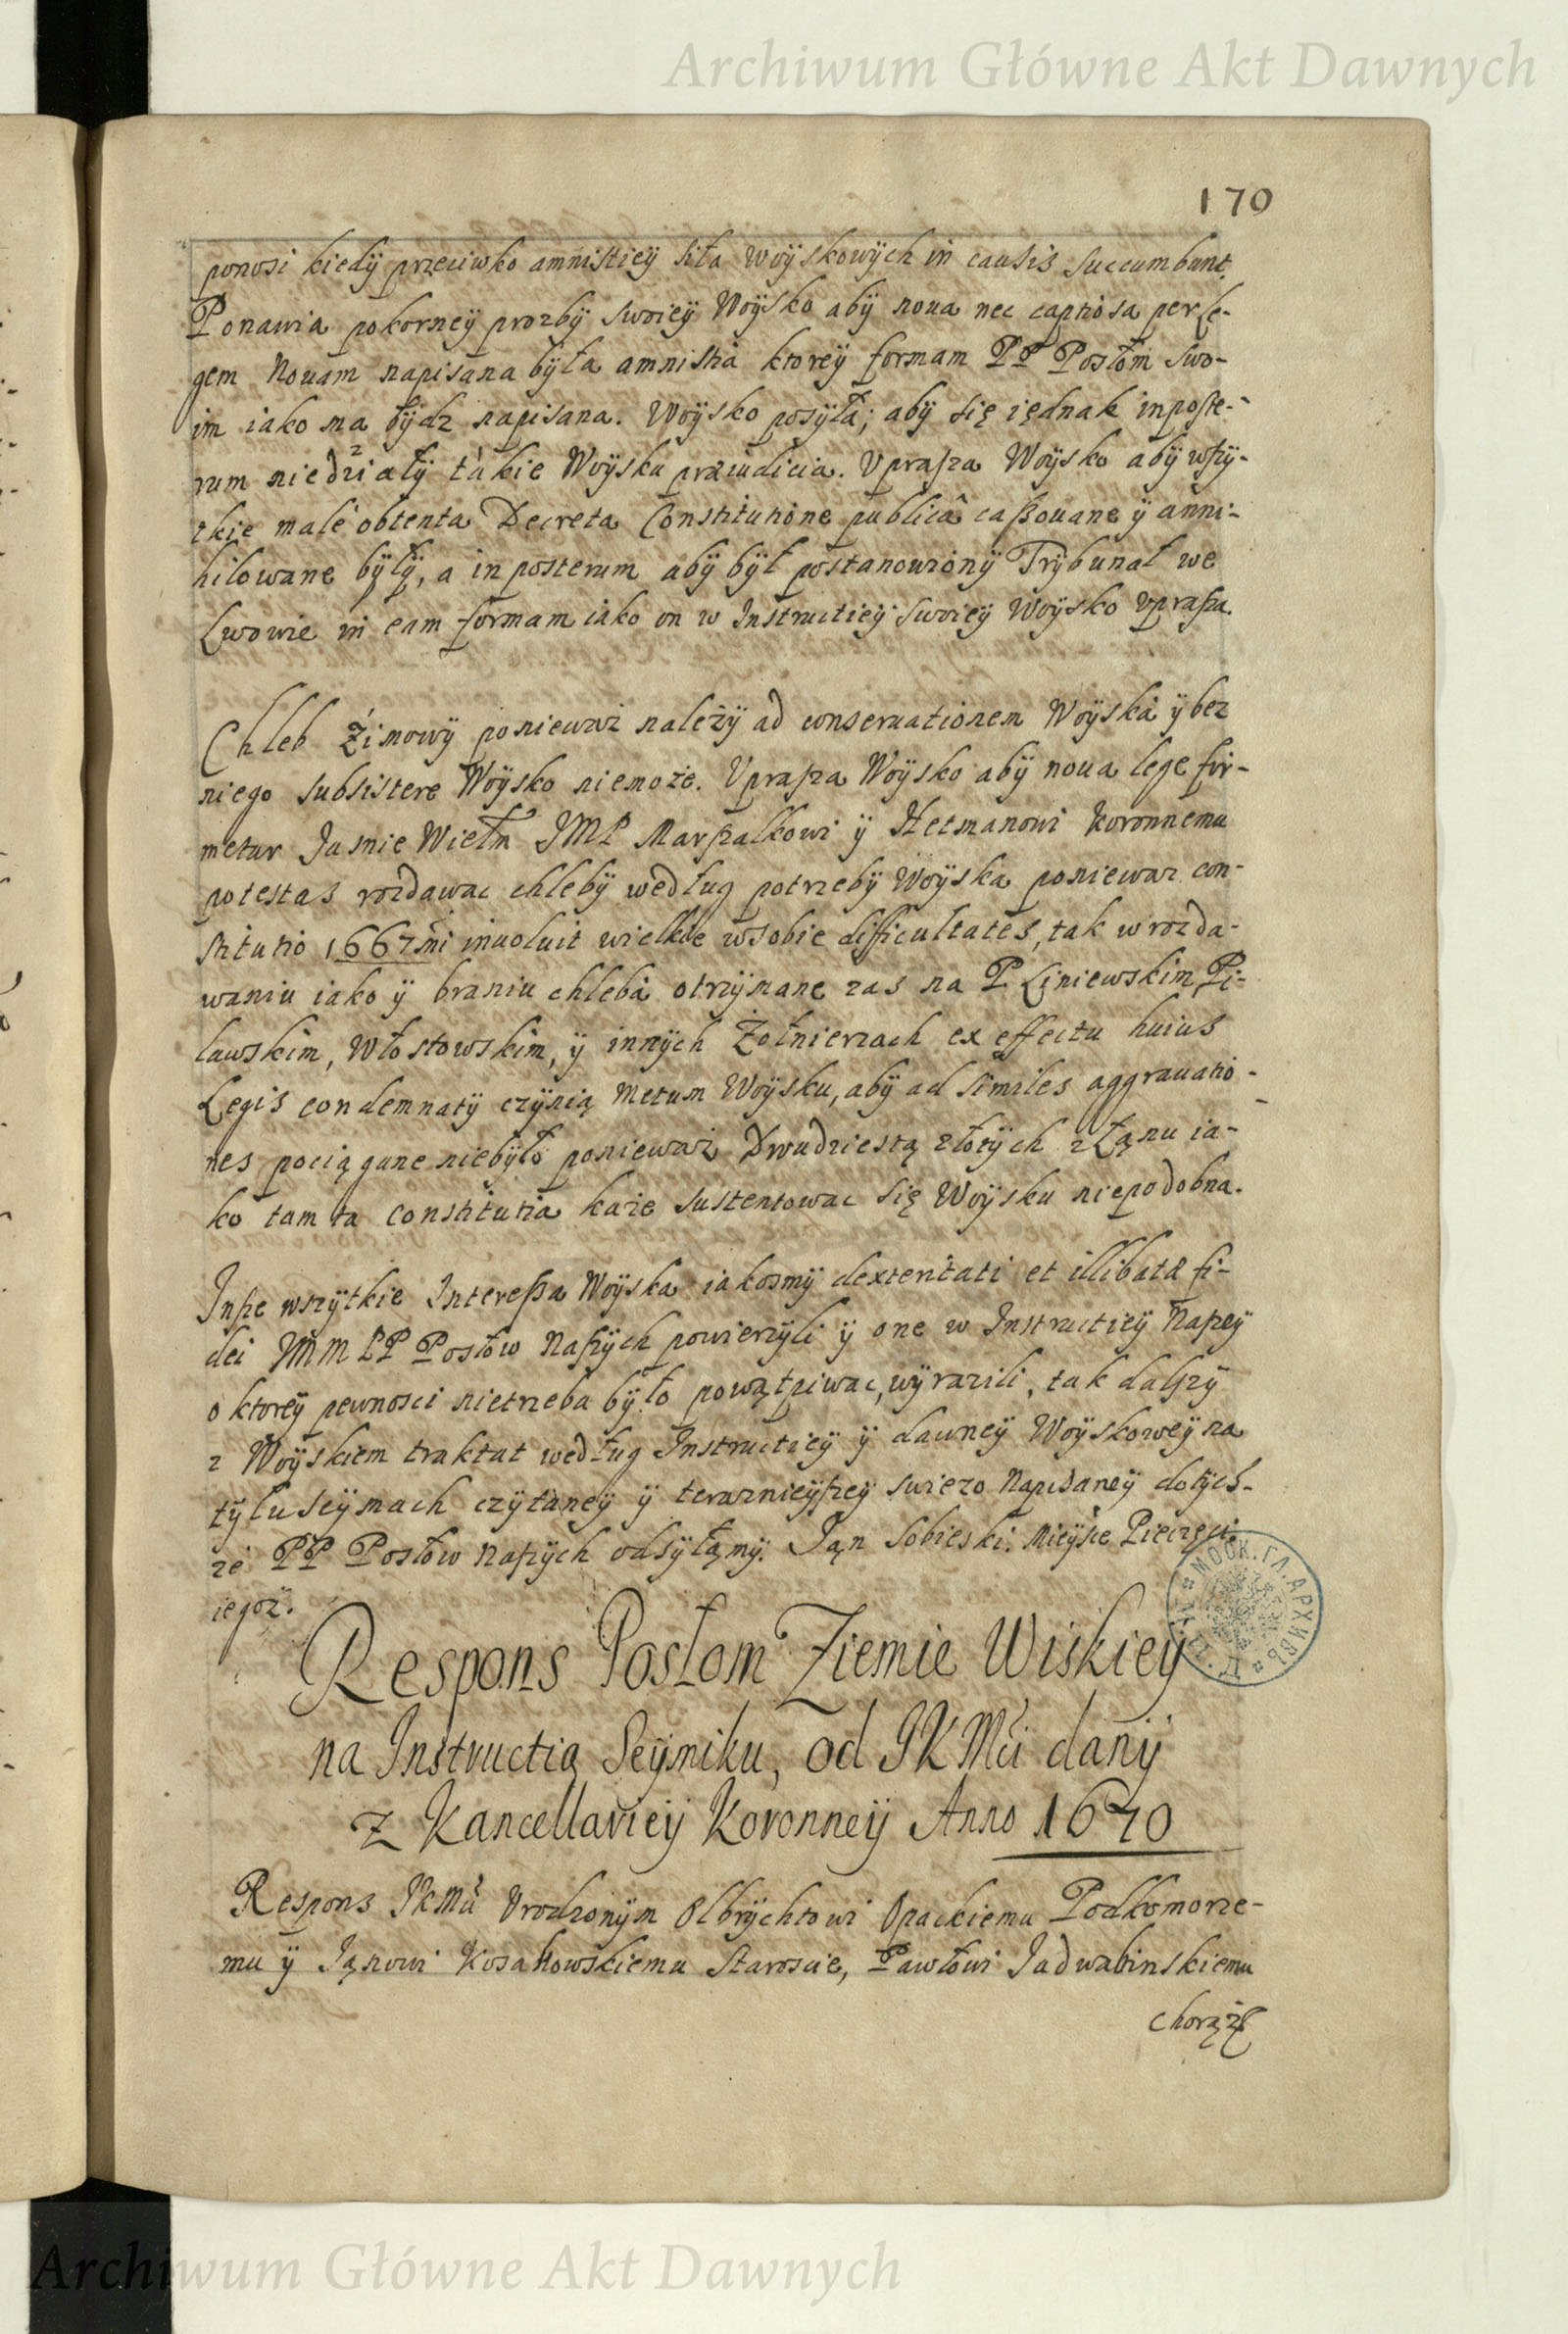 Archiwum Główne Akt Dawnych
170
ponosi kiedÿ przeciwko amnistieÿ siła Woÿskowÿch in causis succumbunt.
Ponawia pokorneÿ prozbÿ swoieÿ Woÿsko abÿ noua nec captiosa per Le-
gem Nouam napisana bÿła amnistia ktoreÿ formam PP Posłom swo-
im iako ma bÿdz napisana. Woÿsko posÿła; abÿ się iędnak inposte-
rum niedziałÿ takie Woÿsku præiudicia. Uprasza Woÿsko abÿ wszÿ-
tkie malè obtenta Decreta Constitutione publicâ cassouane ÿ anni-
hilowane bÿłÿ, a in posterum abÿ bÿł postanowionÿ Trÿbunał we
Lwowie in eam formam iako on w Instructieÿ swoieÿ Woÿsko uprasza.
Chleb Zimowÿ poniewaz należÿ ad conseruationem Woÿska ÿ bez
niego subsistere Woÿsko niemoże. Uprasza Woÿsko abÿ noua lege fir-
metur Jasnie Wielm JMP Marszałkowi ÿ Hetmanowi Koronnemu
potestas rozdawac chlebÿ według potrzebÿ Woÿska poniewaz con-
stitutio 1667mi inuoluit wielkie wsobie difficultates, tak w rozda-
waniu iako ÿ braniu chleba otrzÿmane zas na P Liniewskim, Pi-
lawskim, Włostowskim, ÿ innÿch Żołnierzach ex effectu huius
Legis condemnatÿ czÿnią metum Woÿsku, abÿ ad similes aggrauatio-
nes pociągane niebÿło ponieważ Dwudziestą złotÿch z Łanu ia-
ko tam ta constitutia każe sustentowac się Woÿsku niepodobna.
Insze wszÿtkie Interessa Woÿska iakosmÿ dexteritati et illibatæ fi-
dei JMM PP Posłow Naszÿch powierzÿli ÿ one w Instructieÿ Naszeÿ
o ktoreÿ pewnosci nietrzeba bÿło powątpiwac, wÿrazili, tak dalszÿ
z Woÿskiem traktat według Instructieÿ ÿ dawneÿ Woÿskoweÿ na
tÿlu Seÿmach czÿtaneÿ ÿ teraznieÿszeÿ swiezo Napisaneÿ dotÿch-
że PP Posłow Naszÿch odsÿłamÿ. Jan Sobieski. Mieÿsce Pieczęci
iegoż.
МОСК. ГЛ. АРХИВЪ
Respons Posłom Ziemie Wiskieÿ
na Instructią Seÿmiku, od JKMci danÿ
z Kancellarieÿ Koronneÿ Anno 1670
Respons JKMci Vrodzonÿm Olbrÿchtowi Opackiemu Podkomorze-
mu ÿ Janowi Kosakowskiemu Staroscie, Pawłowi Jadwabinskiemu
Chorąże
Archiwum Główne Akt Dawnych